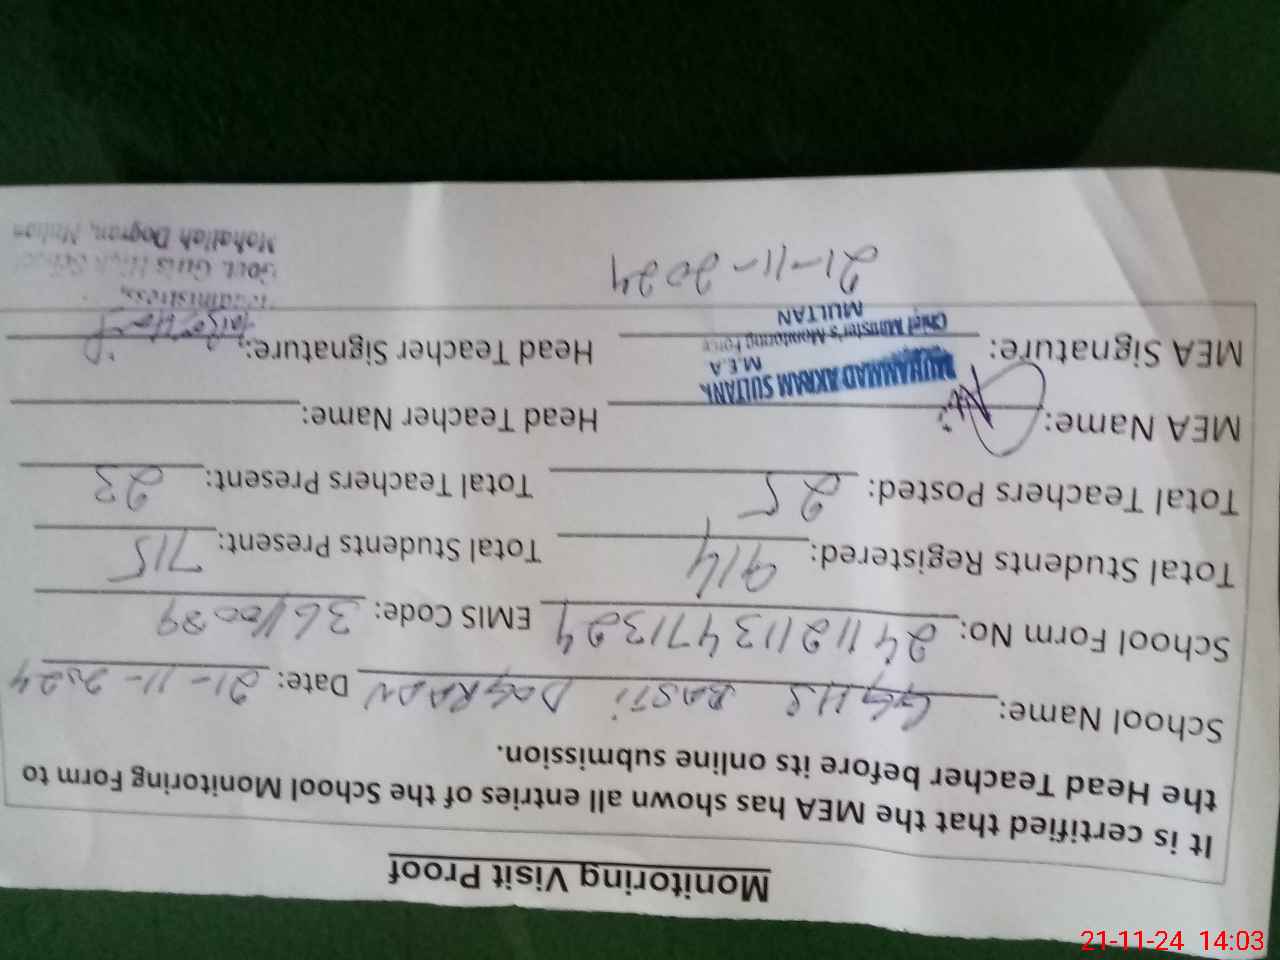 Monitoring Visit Proof
It is certified that the MEA has shown all entries of the School Monitoring Form to
the Head Teacher before its online submission.
School Name: GGHS BASTI DOGRAAN Date: 21-11-2024
School Form No: 24112113471324 EMIS Code: 36110089
Total Students Registered: 914 Total Students Present: 715
Total Teachers Posted: 25 Total Teachers Present: 23
MEA Name: Head Teacher Name:
MUHAMMAD AKRAM SULTANA
M.E.A
MEA Signature: Head Teacher Signature:
Chief Minister's Monitoring Force
MULTAN
21-11-2024
Headmistress,
Govt. Girls High School
Mohallah Dogran, Multan
21-11-24 14:03